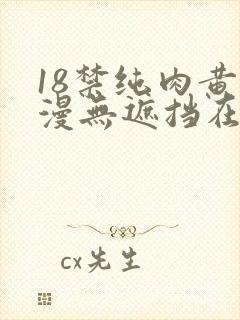 18禁纯肉黄
漫無遮挡在
cx先生